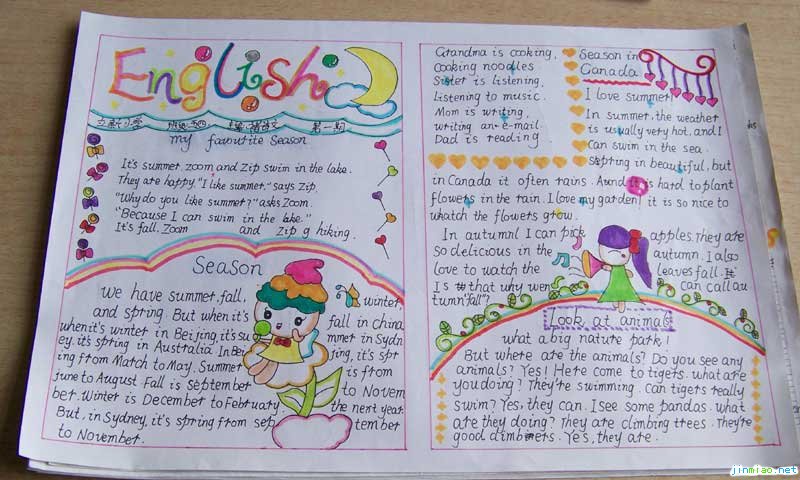 English
第一期
my favourite Season
It's summer. zoom and Zip swim in the lake.
They are happy. "I like summer," says Zip.
"Why do you like summer?" asks Zoom.
"Because I can swim in the lake."
It's fall. Zoom and Zip g hiking.
Season
We have summer, fall, winter,
and spring. But when it's fall in china
when it's winter in Beijing, it's summer in Sydn
ey. it's spring in Australia. In Beijing, it's spr
ing from Match to May. Summer is from
June to August. Fall is September to Novem
ber. Winter is December to February the next year.
But, in Sydney, it's spring from september
to November.
Grandma is cooking,
Cooking noodles
Sister is listening,
Listening to music.
Mom is writing,
writing an e-mail
Dad is reading
Season in
Canada
I love summer!
In summer, the weather
is usually very hot, and I
can swim in the sea.
spring in beautiful, but
in Canada it often rains. Aound it is hard to plant
flowers in the rain. I love my garden! it is so nice to
whatch the flowers grow.
In autumn I can pick apples. They are
so delicious in the autumn. I also
love to watch the leaves fall. It
Is that why wen can call au
tumn "fall"?
Look at animals
what a big nature park!
But where are the animals? Do you see any
animals? Yes! Here come to tigers. what are
you doing? They're swimming. Can tigers really
swim? Yes, they can. I see some pandas. what
are they doing? They are climbing trees. They're
good climbiners. Yes, they are.
jinmiao.net